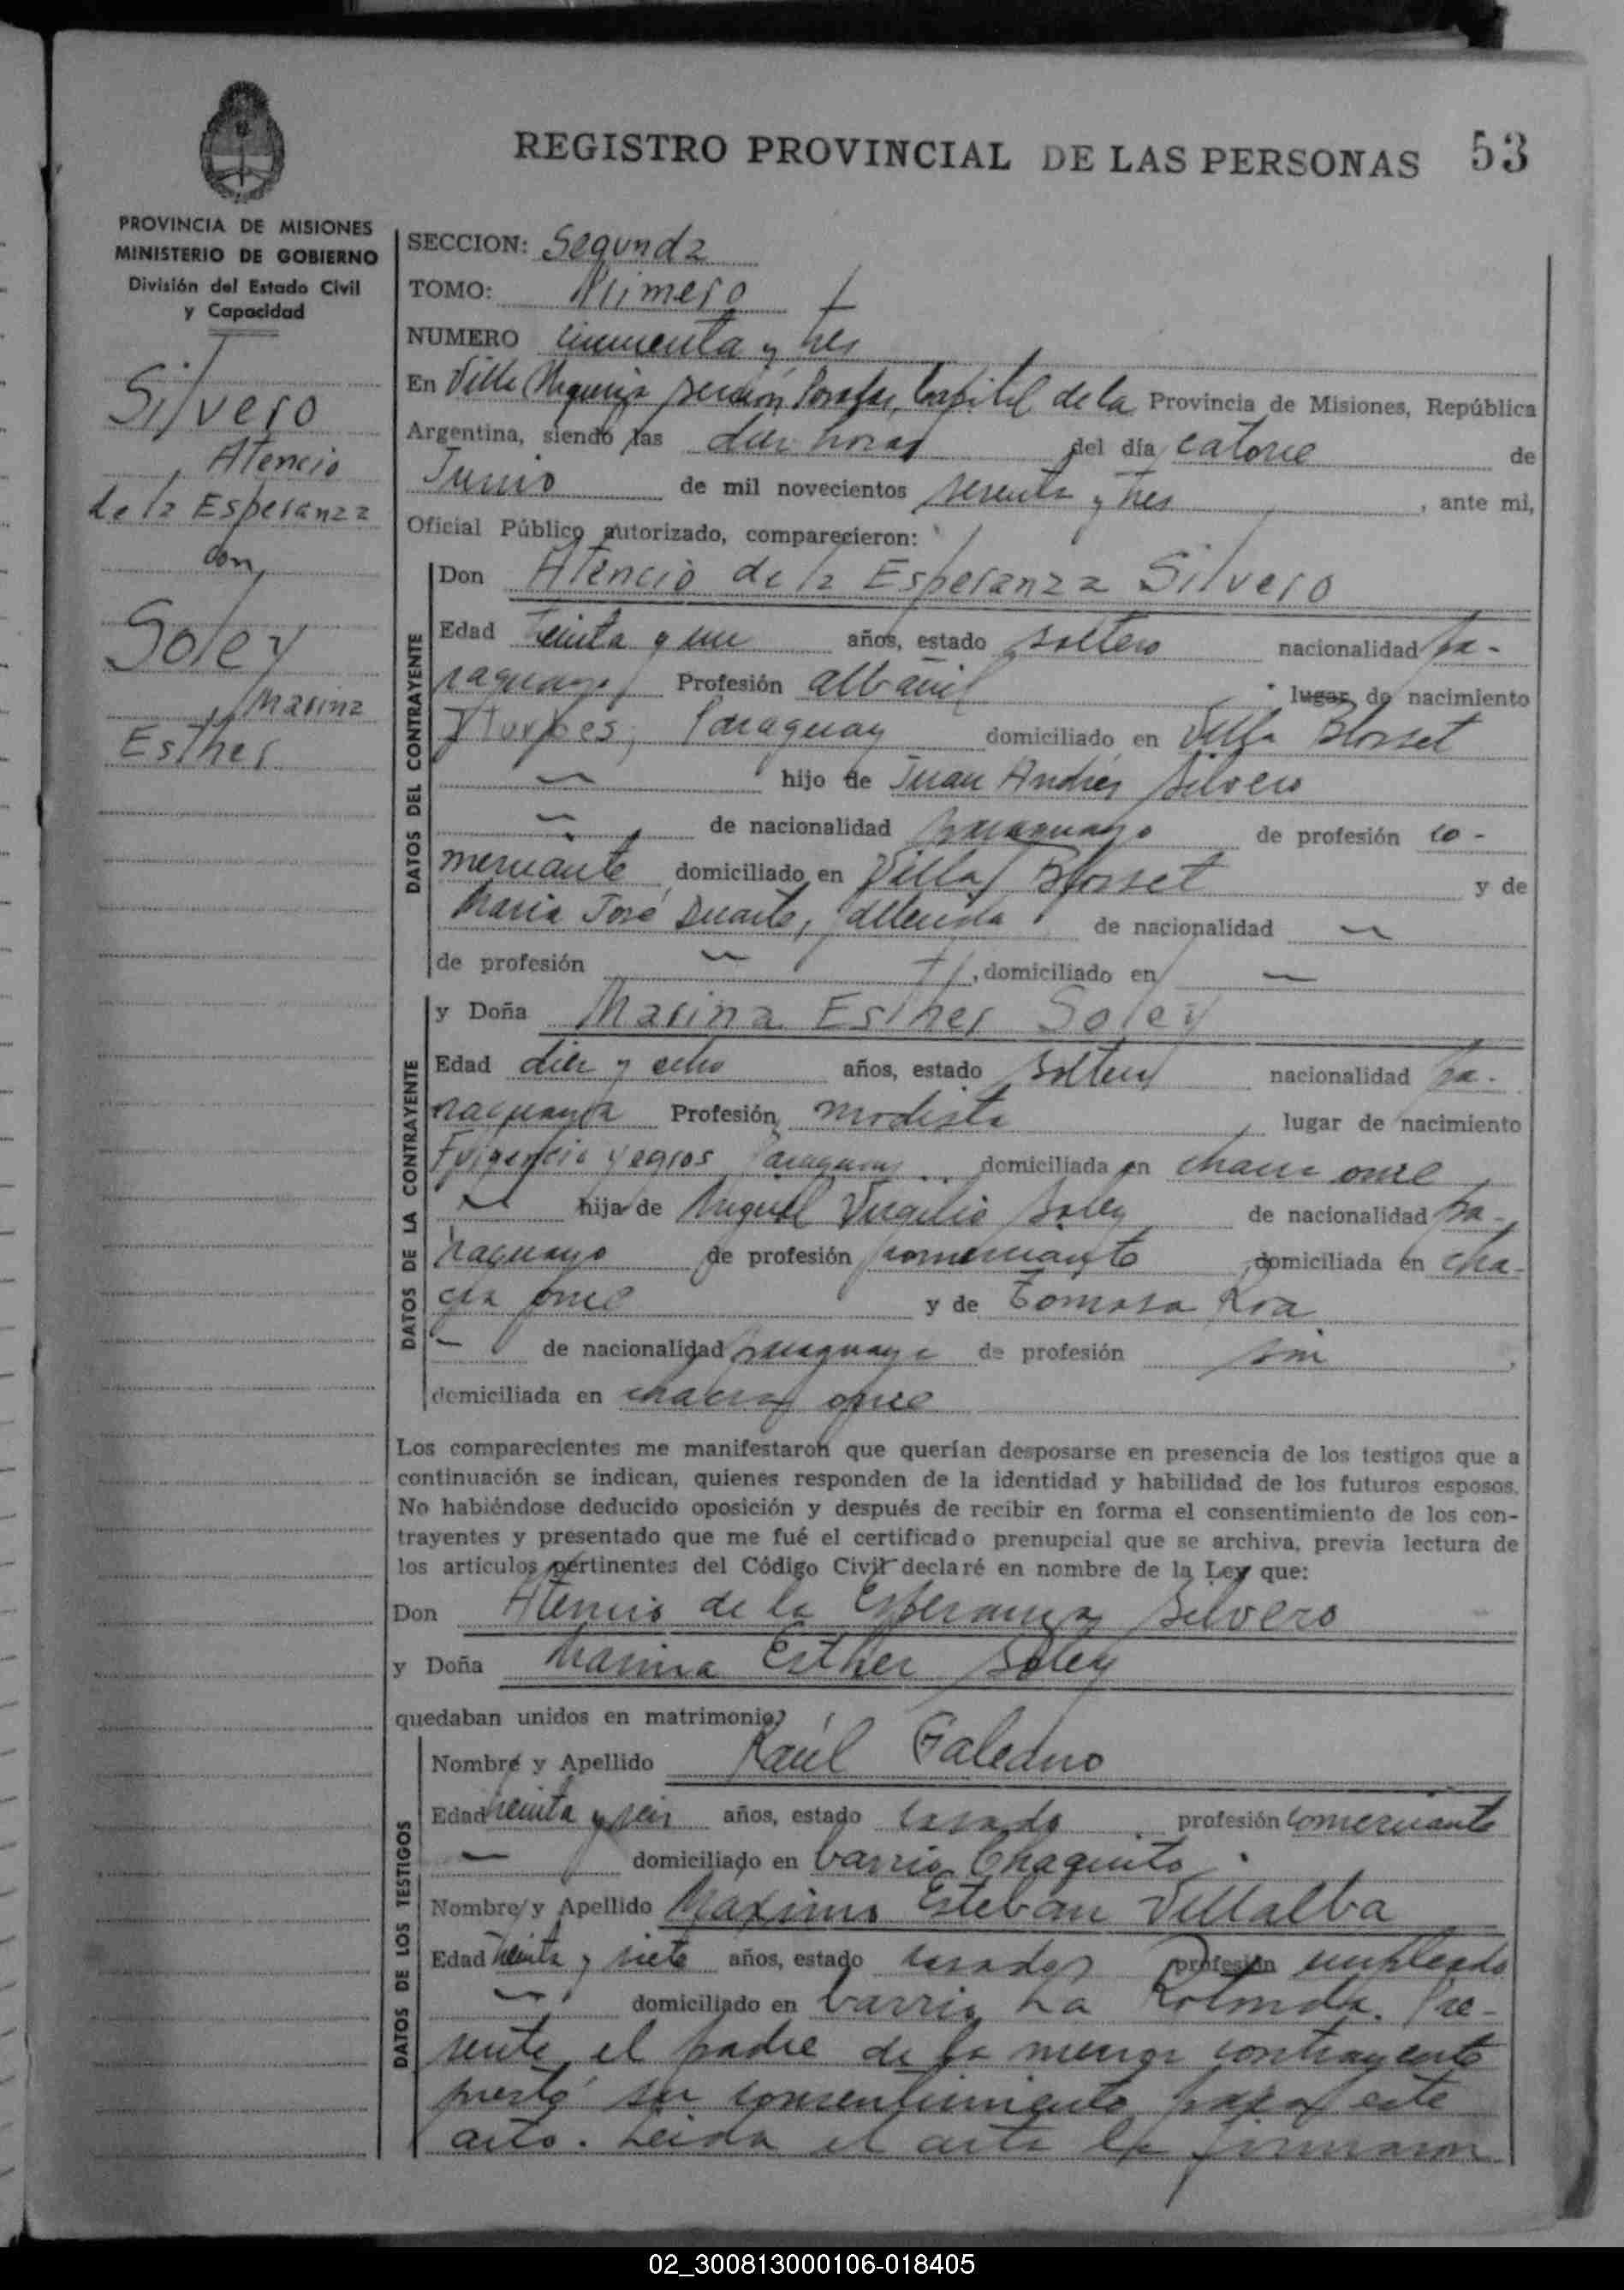 REGISTRO PROVINCIAL DE LAS PERSONAS 53
PROVINCIA DE MISIONES
MINISTERIO DE GOBIERNO
División del Estado Civil
y Capacidad
Silvero
Atencio
de la Esperanza
con
Soley
Marina
Esther
SECCION: Segunda
TOMO: Primero
NUMERO cincuenta y tres
En Villa Urquiza sección Posadas, Capital de la Provincia de Misiones, República
Argentina, siendo las diez horas del día catorce de
Junio de mil novecientos sesenta y tres, ante mi,
Oficial Público autorizado, comparecieron:
DATOS DEL CONTRAYENTE
Don Atencio de la Esperanza Silvero
Edad treinta y un años, estado soltero nacionalidad pa-
raguaya Profesión albañil lugar de nacimiento
Yturbes, Paraguay domiciliado en Villa Blosset
hijo de Juan Andrés Silvero
de nacionalidad paraguayo de profesión co-
merciante domiciliado en Villa Blosset y de
María José Duarte, fallecida de nacionalidad
de profesión , domiciliado en
DATOS DE LA CONTRAYENTE
y Doña Marina Esther Soley
Edad diez y ocho años, estado soltera nacionalidad pa-
raguaya Profesión modista lugar de nacimiento
Fulgencio Yegros Paraguay domiciliada en chacra once
hija de Miguel Virgilio Soley de nacionalidad pa-
raguayo de profesión comerciante domiciliada en cha-
cra once y de Tomasa Roa
de nacionalidad paraguaya de profesión sin
domiciliada en chacra once
Los comparecientes me manifestaron que querían desposarse en presencia de los testigos que a
continuación se indican, quienes responden de la identidad y habilidad de los futuros esposos.
No habiéndose deducido oposición y después de recibir en forma el consentimiento de los con-
trayentes y presentado que me fué el certificado prenupcial que se archiva, previa lectura de
los artículos pertinentes del Código Civil declaré en nombre de la Ley que:
Don Atencio de la Esperanza Silvero
y Doña Marina Esther Soley
quedaban unidos en matrimonio,
DATOS DE LOS TESTIGOS
Nombre y Apellido Raúl Galeano
Edad treinta y seis años, estado casado profesión comerciante
domiciliado en barrio Chaquito
Nombre y Apellido Maximo Esteban Villalba
Edad treinta y siete años, estado casado profesión empleado
domiciliado en barrio La Rotonda. Pre-
sente el padre de la menor contrayente
prestó su consentimiento para este
acto. Leída el acta la firmaron
02_300813000106-018405